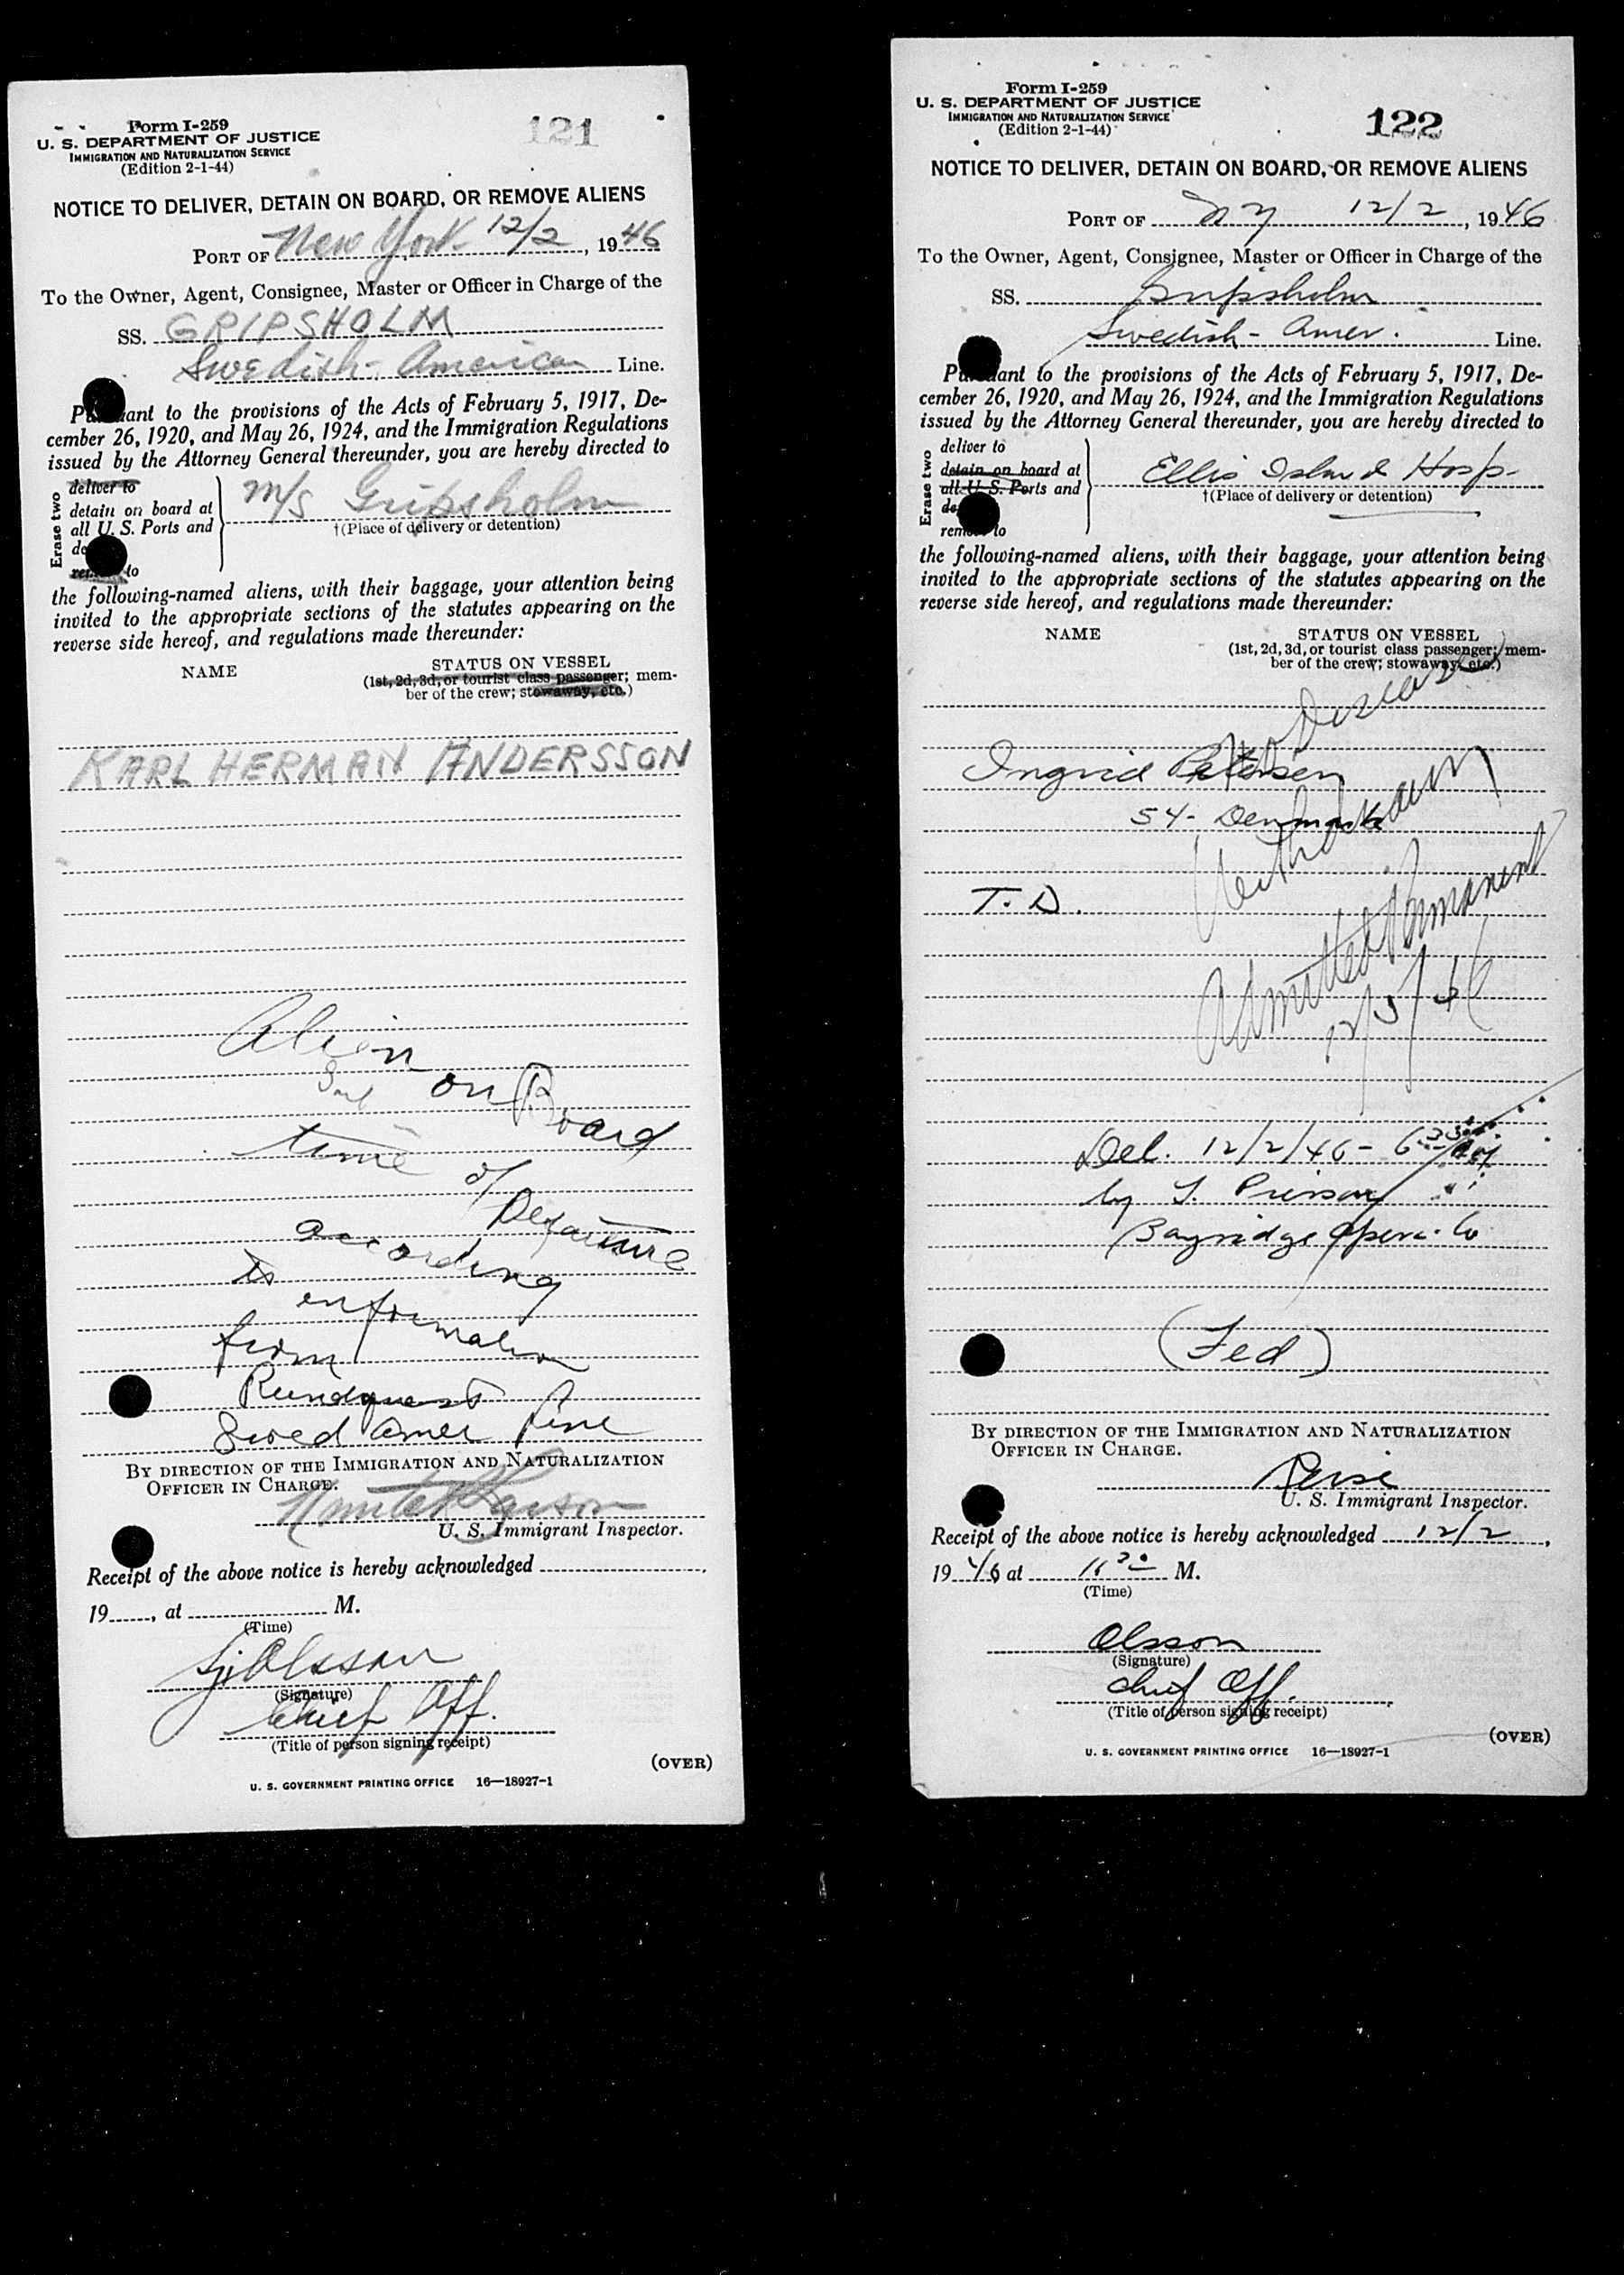 Form I-259
U. S. DEPARTMENT OF JUSTICE
IMMIGRATION AND NATURALIZATION SERVICE
(Edition 2-1-44)
121
NOTICE TO DELIVER, DETAIN ON BOARD, OR REMOVE ALIENS
PORT OF New York 12/2, 1946
To the Owner, Agent, Consignee, Master or Officer in Charge of the
SS. GRIPSHOLM
Swedish-American Line.
Pursuant to the provisions of the Acts of February 5, 1917, De-
cember 26, 1920, and May 26, 1924, and the Immigration Regulations
issued by the Attorney General thereunder, you are hereby directed to
Erase two
deliver to
detain on board at
all U. S. Ports and
de
remove to
M/S Gripsholm
†(Place of delivery or detention)
the following-named aliens, with their baggage, your attention being
invited to the appropriate sections of the statutes appearing on the
reverse side hereof, and regulations made thereunder:
NAME
STATUS ON VESSEL
(1st, 2d, 3d, or tourist class passenger; mem-
ber of the crew; stowaway, etc.)
KARL HERMAN ANDERSSON
Alien
on Board
time
of
Departure
according
to
information
from
Rundquest
Swed Amer Line
BY DIRECTION OF THE IMMIGRATION AND NATURALIZATION
OFFICER IN CHARGE.
U. S. Immigrant Inspector.
Receipt of the above notice is hereby acknowledged
19, at M.
(Time)
Olsson
(Signature)
Chief Off.
(Title of person signing receipt)
(OVER)
U. S. GOVERNMENT PRINTING OFFICE 16—18927-1
Form I-259
U. S. DEPARTMENT OF JUSTICE
IMMIGRATION AND NATURALIZATION SERVICE
(Edition 2-1-44)
122
NOTICE TO DELIVER, DETAIN ON BOARD, OR REMOVE ALIENS
PORT OF NY 12/2, 1946
To the Owner, Agent, Consignee, Master or Officer in Charge of the
SS. Gripsholm
Swedish-Amer. Line.
Pursuant to the provisions of the Acts of February 5, 1917, De-
cember 26, 1920, and May 26, 1924, and the Immigration Regulations
issued by the Attorney General thereunder, you are hereby directed to
Erase two
deliver to
detain on board at
all U. S. Ports and
de
remove to
Ellis Island Hosp-
†(Place of delivery or detention)
the following-named aliens, with their baggage, your attention being
invited to the appropriate sections of the statutes appearing on the
reverse side hereof, and regulations made thereunder:
NAME
STATUS ON VESSEL
(1st, 2d, 3d, or tourist class passenger; mem-
ber of the crew; stowaway, etc.)
No Disease
Ingrid Petersen
54- Denmark
Withdrawn
T. D.
Admitted Permanent
12/5/46
Del. 12/2/46 - 6 30
by
Bayridge Opera. Co
(Fed)
BY DIRECTION OF THE IMMIGRATION AND NATURALIZATION
OFFICER IN CHARGE.
U. S. Immigrant Inspector.
Receipt of the above notice is hereby acknowledged 12/2,
1946 at M.
(Time)
Olsson
(Signature)
Chief Off.
(Title of person signing receipt)
(OVER)
U. S. GOVERNMENT PRINTING OFFICE 16—18927-1